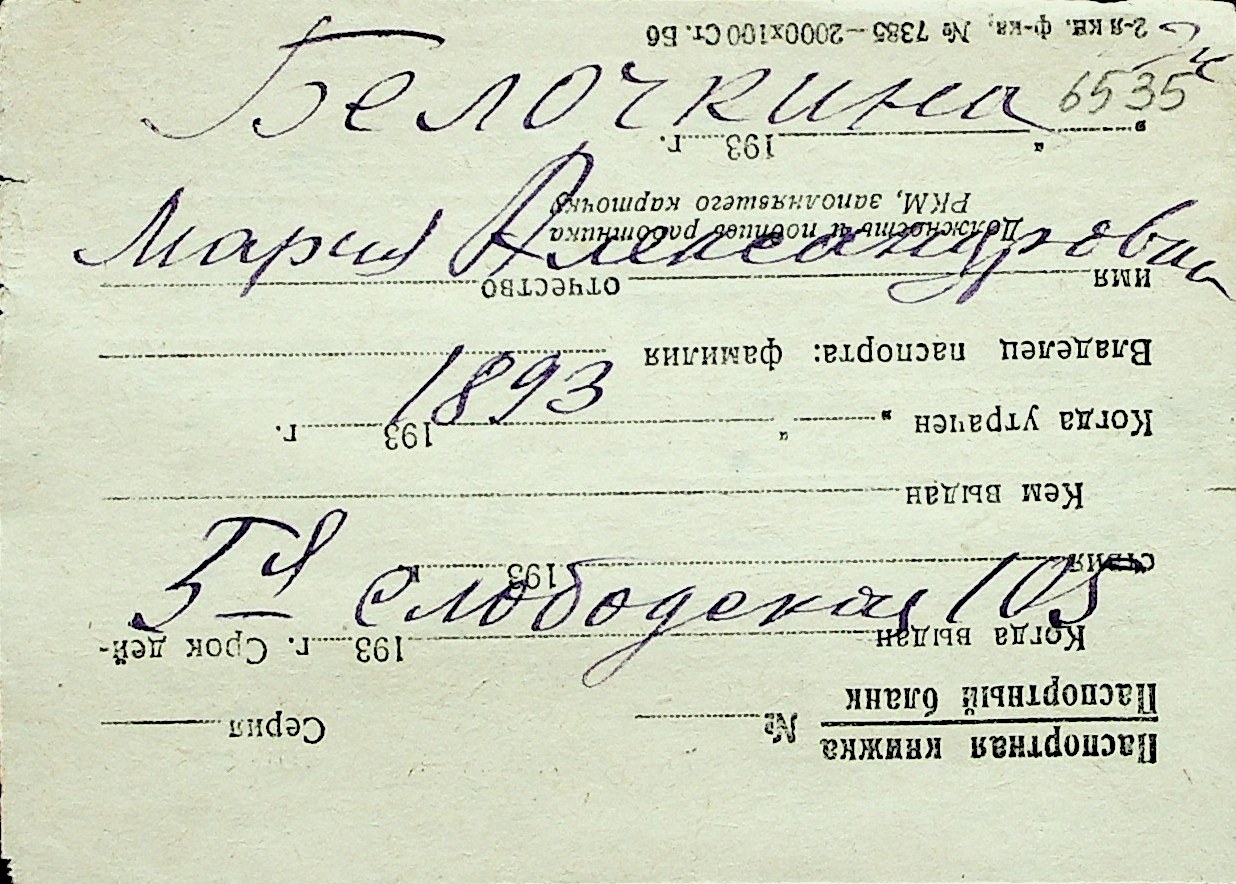 Белочкина 6535
Мария Александровна
1893
5я Слободская 105
Паспортная книжка
Паспортный бланк № Серия
Когда выдан 193 г. Срок дей-
ствия 193 г.
Кем выдан
Когда утрачен „ “ 193 г.
Владелец паспорта: фамилия
имя отчество
Должность и подпись работника
РКМ, заполнявшего карточку
„ “ 193 г.
2-я кн. ф-ка, № 7385—2000х100 Ст. Б6